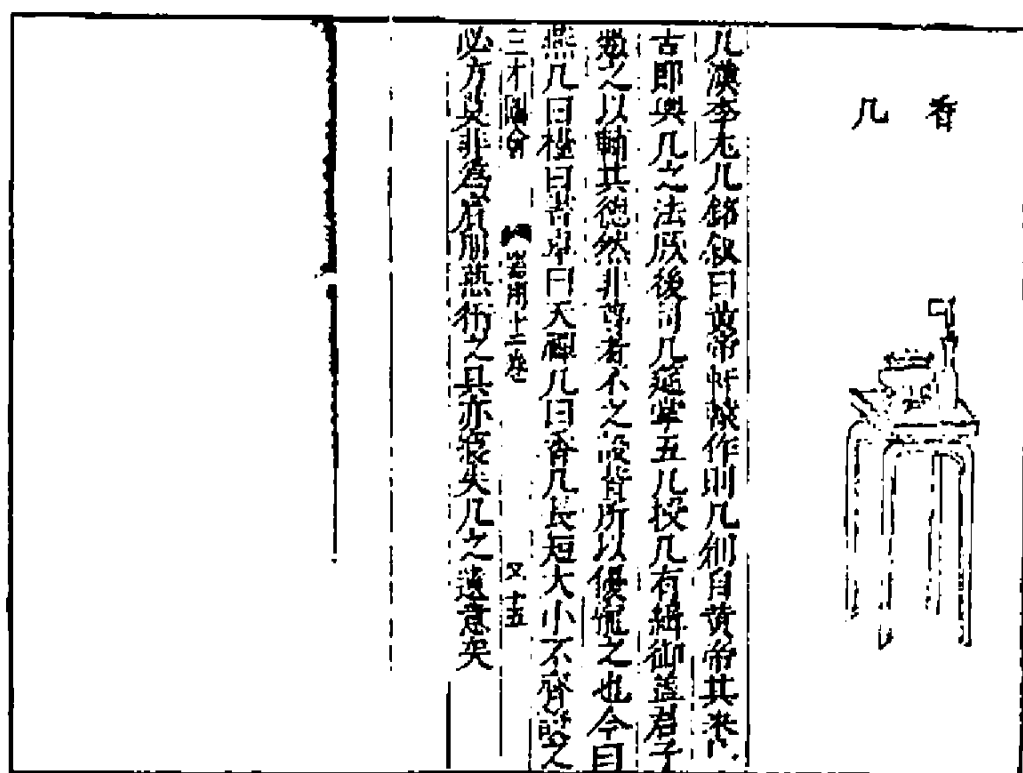 香几
几漢李尤几銘叙曰黃帝軒轅作則几創自黃帝其來已
古即與几之法厥後司几筵掌五几授几有緝御蓋君子
之以輔其德然非尊者不之設皆所以優寵之也今曰
燕几曰檯曰書卓曰天禪几曰香几長短大小不齊設之
三才圖會 器用十二卷 又十五
必方非為賓朋燕衎之具亦寖失几之遺意矣